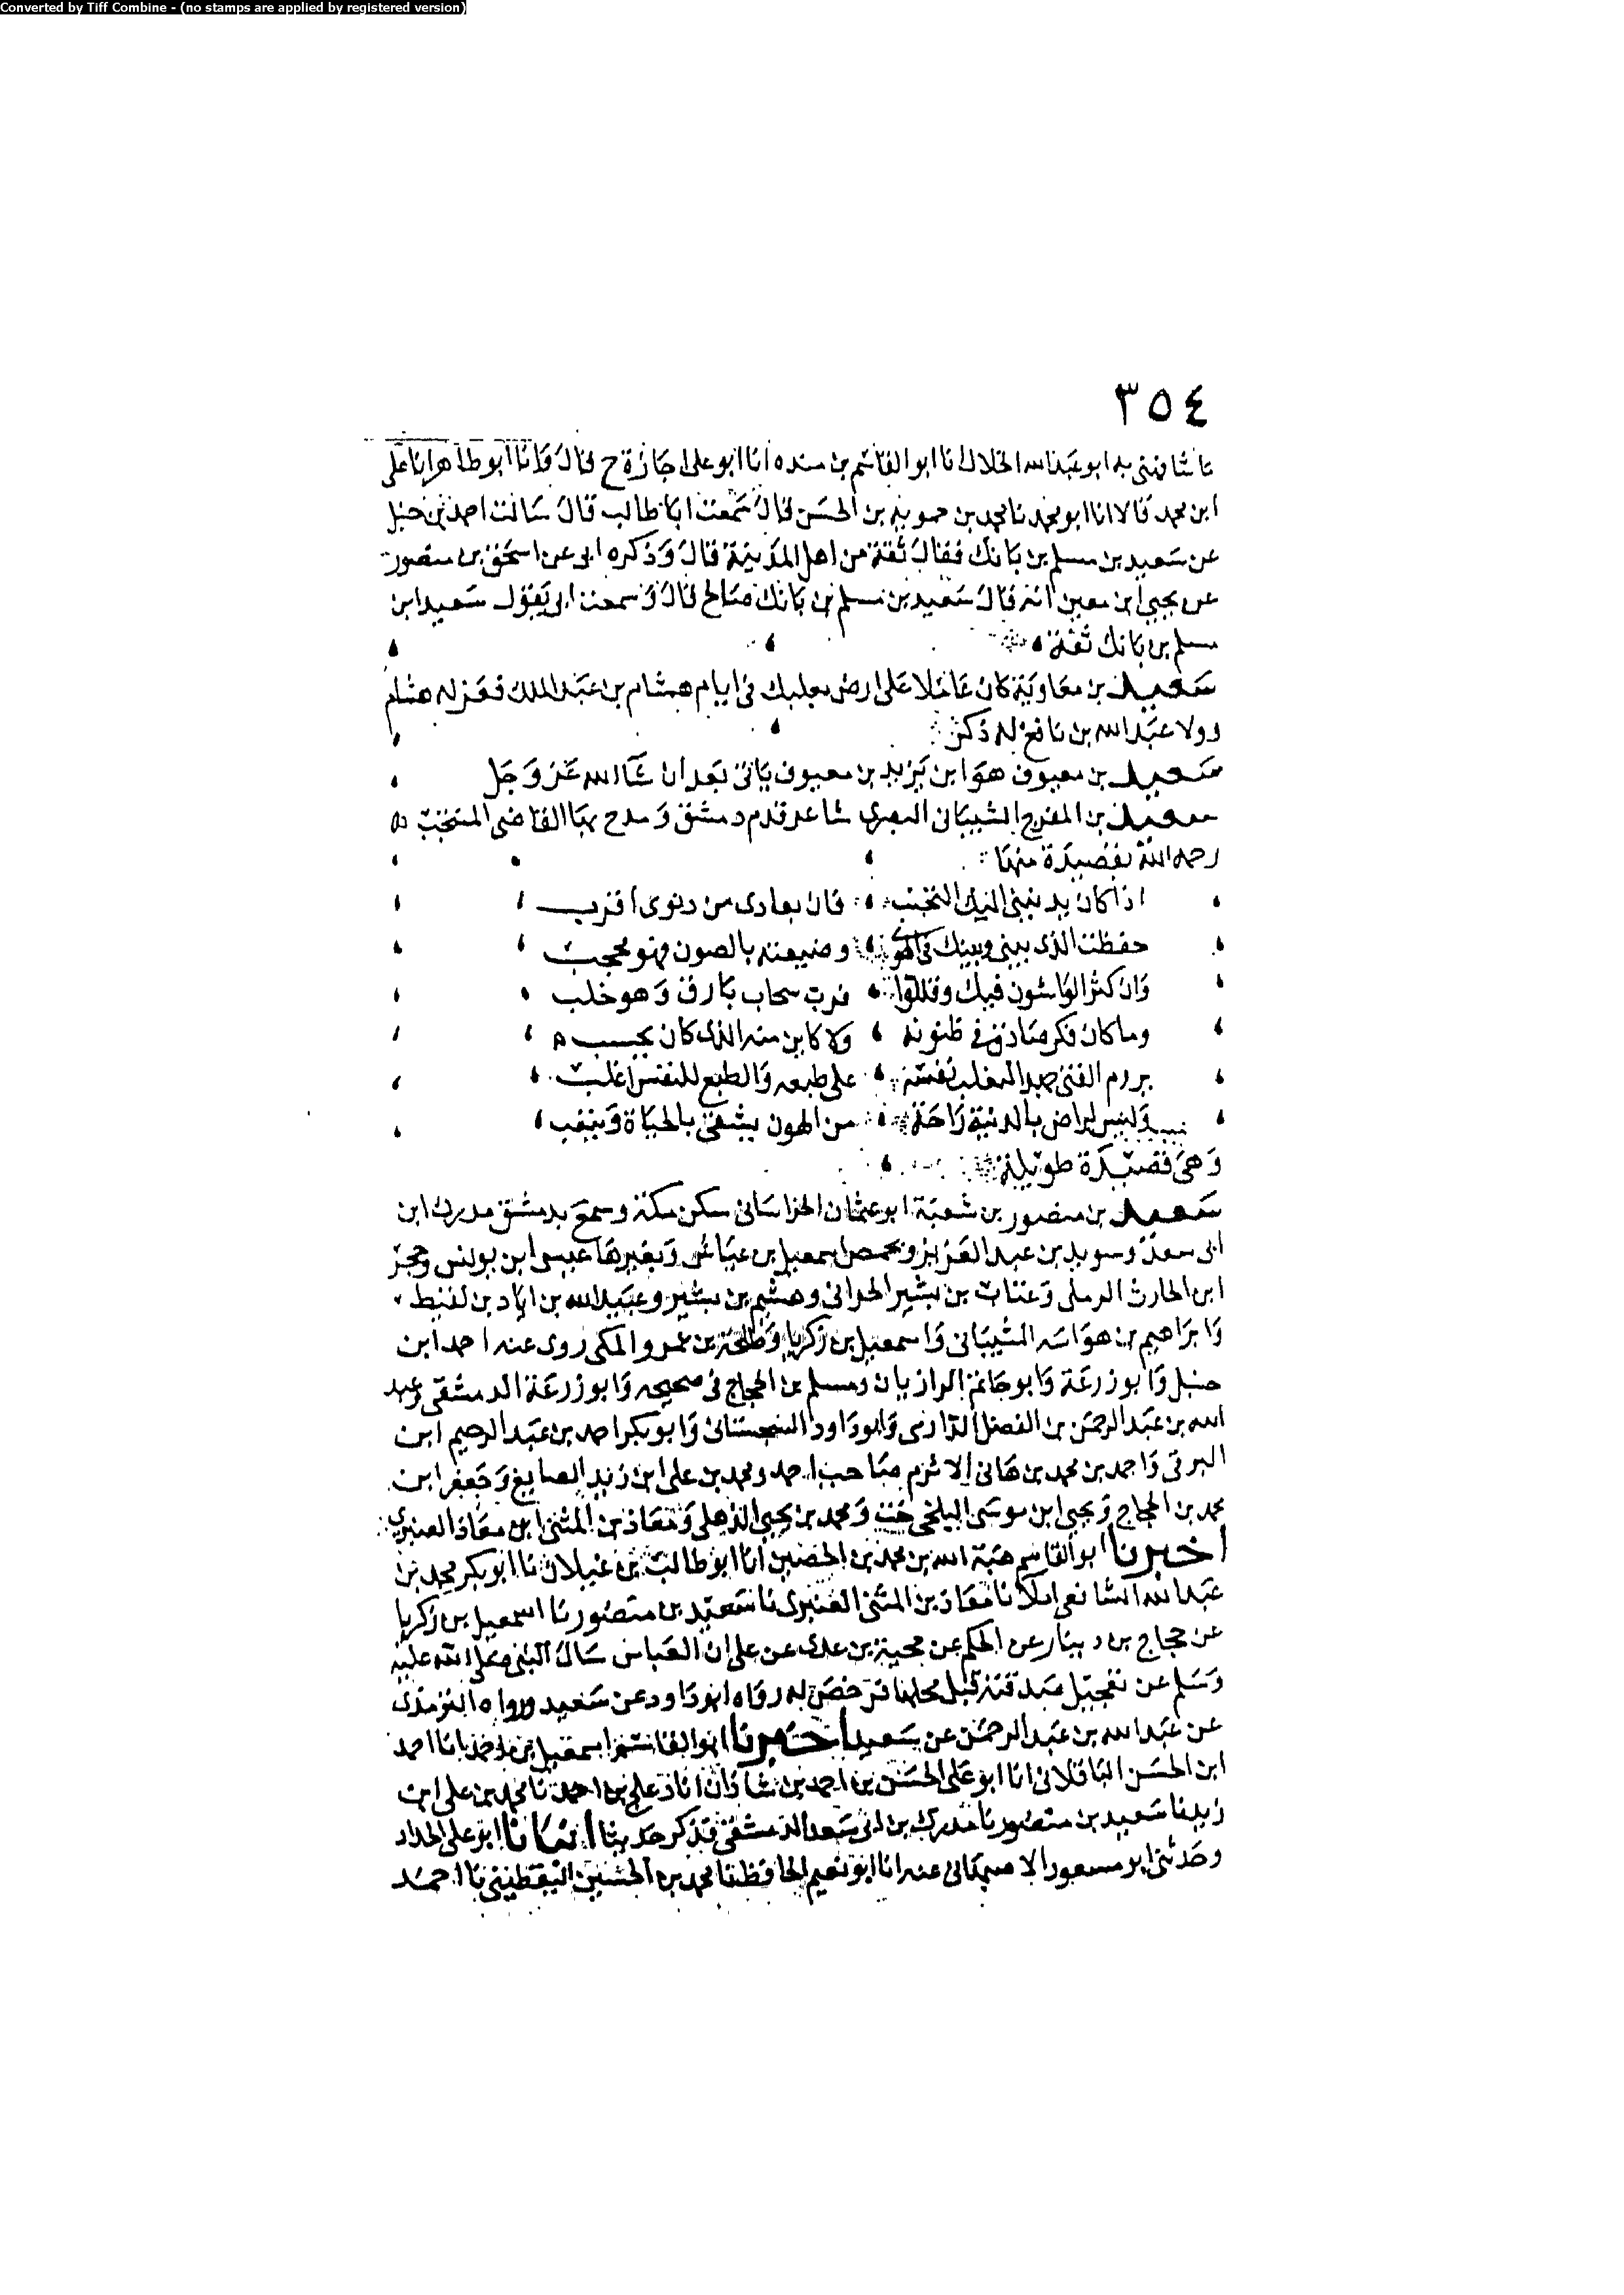 Converted by Tiff Combine - (no stamps are applied by registered version)
٣٥٤
ابو عبدالله الخلال انا ابو القاسم بن منده انا ابو على اجازة ح قال وانا ابو طاهر انا على
ابن محمد قالا انا ابو محمد نا محمد بن حمويه بن الحسن قال سمعت ابا طالب قال سالت احمد بن حنبل
عن سعيد بن مسلم بن بانك فقال ثقة من اهل المدينة قال وذكره ابى عن اسحق بن منصور
عن يحيى ابن معين انه قال سعيد بن مسلم بن بانك صالح قال وسمعت ابى يقول سعيد ابن
مسلم بن بانك ثقة
سعيد بن معاوية كان عاملا على ارض بعلبك فى ايام هشام بن عبد الملك فعزله هشام
وولا عبد الله بن نافع له ذكر
سعيد بن معيوف هو ابن يزيد بن معيوف ياتى بعد ان شا الله عز وجل
سعيد بن المفرج الشيبانى البصرى شاعر قدم دمشق ومدح بها القاضى المنتخب
رحمه الله بقصيدة منها
اذا كان يدنينى اليك التجنب فان بعادى من دنوى اقرب
حفظت الذى بينى وبينك فى الهوى وضيعته بالصون وهو محجب
وان كثر الواشون فيك وقللوا فرب سحاب بارق وهو خلب
وما كان فكر صادق فى ظنونه ولا كاين منه الذى كان يحسب
يروم الفتى نفسه على طبعه والطبع للنفس اغلب
وليس لراض بالدنية راحة من الهون يشقى بالحياة ويتعب
وهى قصيدة طويلة
سعيد بن منصور بن شعبة ابو عثمان الخراسانى سكن مكة وسمع بدمشق مدرك ابن
ابى سعد وسويد بن عبد العزيز وبحمص اسمعيل بن عياش وبغيرها عيسى ابن يونس وحجر
ابن الحارث الرملى وعتاب بن بشير الحرانى وهشيم بن بشير وعبيد الله بن اياد بن لقيط
وابراهيم بن هراسه الشيبانى واسمعيل بن زكريا وطلحة بن عمرو المكى روى عنه احمد ابن
حنبل وابو زرعة وابو حاتم الرازيان ومسلم بن الحجاج فى صحيحه وابو زرعة الدمشقى وعبد
الله بن عبد الرحمن بن الفضل الدارمى وابو داود السجستانى وابو بكر احمد بن عبد الرحيم ابن
البرقى واحمد بن محمد بن هانى الاثرم صاحب احمد ومحمد بن على ابن زيد الصايغ وجعفر ابن
محمد بن الحجاج ويحيى ابن موسى البلخى خت ومحمد بن يحيى الذهلى ومعاذ بن المثنى ابن معاذ العنبرى
اخبرنا ابو القاسم هبة الله بن محمد بن الحصين انا ابو طالب بن غيلان نا ابو بكر محمد بن
عبد الله الشافعى املآ نا معاذ بن المثنى العنبرى نا سعيد بن منصور نا اسمعيل بن زكريا
عن حجاج بن دينار عن الحكم عن حجية بن عدى عن على ان العباس سال النبى صلى الله عليه
وسلم عن تعجيل صدقته قبل محلها فرخص له رواه ابو داود عن سعيد ورواه الترمذى
عن عبد الله بن عبد الرحمن عن سعيد اخبرنا ابو القاسم اسمعيل بن انا احمد
ابن الحسن الباقلانى انا ابو على الحسن بن احمد بن شاذان انا دعلج بن احمد نا محمد بن على ابن
زيد نا سعيد بن منصور نا مدرك بن ابى سعد الدمشقى فذكر حديثا انبانا ابو على الحداد
وحدثنى ابو مسعود الاصبهانى عنه انا ابو نعيم الحافظ نا محمد بن الحسين اليقطينى نا احمد